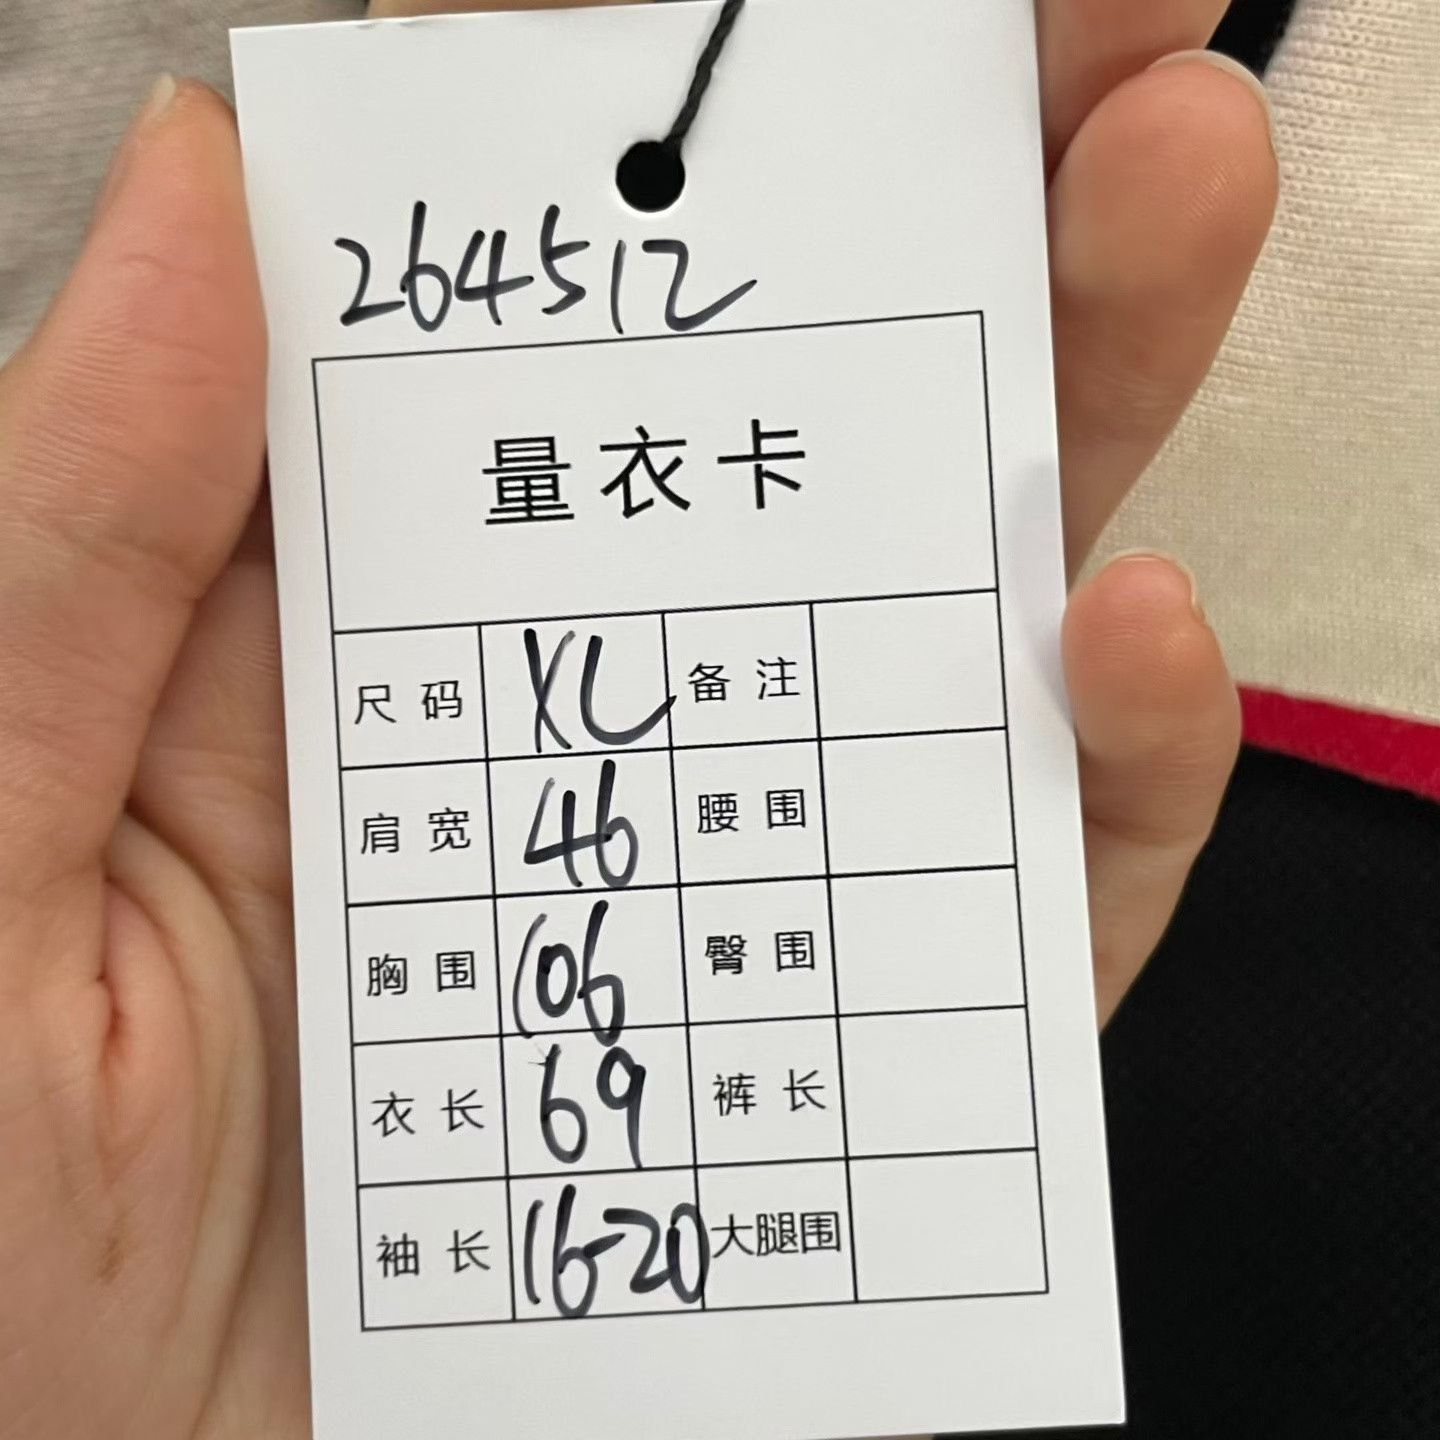 264512
量衣卡
尺码 XL 备注
肩宽 46 腰围
胸围 106 臀围
衣长 69 裤长
袖长 16-20 大腿围